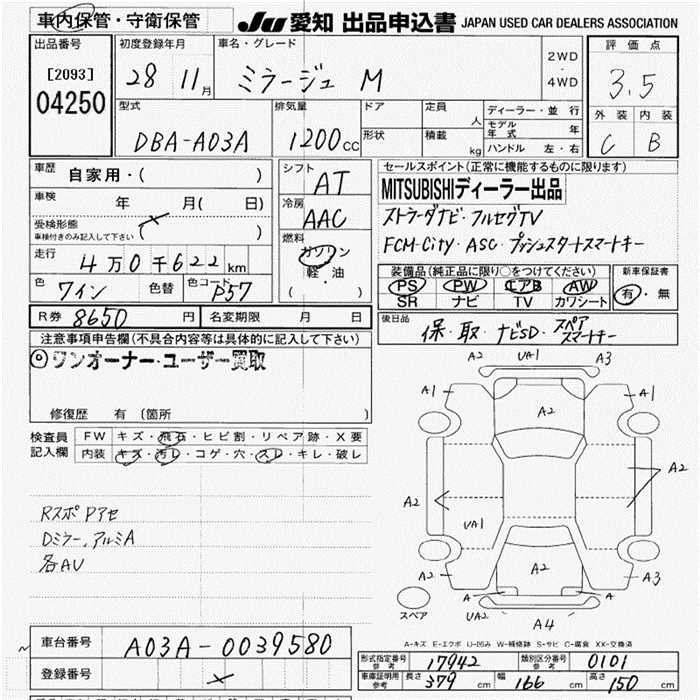 車内保管・守衛保管 JU 愛知 出品申込書 JAPAN USED CAR DEALERS ASSOCIATION
出品番号 [2093] 04250
初度登録年月 28 11月
車名・グレード ミラージュ M
2WD・4WD
評価点 3.5
外装 C 内装 B
型式 DBA-A03A
排気量 1200cc
ドア 形状
定員 人 積載 kg
ディーラー・並行
モデル年式 年
ハンドル 左・右
車歴 自家用・( )
車検 年 月( 日)
受検形態 車検付きのみ記入して下さい ( )
走行 4万0千622km
色 ワイン 色替 色コード P57
シフト AT
冷房 AAC
燃料 ガソリン 軽・油 ( )
セールスポイント(正常に機能するものに限ります)
MITSUBISHIディーラー出品
ストラーダナビ・フルセグTV
FCM-City・ASC・プッシュスタートスマートキー
装備品(純正品に限り○をつけてください)
PS PW エアB AW
SR ナビ TV カワシート
新車保証書 有・無
R券 8650円 名変期限 月 日
後日品 保・取・ナビSD・スペアスマートキー
注意事項申告欄(不具合内容等は具体的に記入して下さい)
◎ワンオーナー・ユーザー買取
修復歴 有 (箇所 )
検査員記入欄
FW キズ・飛石・ヒビ割・リペア跡・X要
内装 キズ・汚レ・コゲ・穴・スレ・キレ・破レ
RスポPアセ
Dミラー、アルミA
各AU
A2 UA1 A3
A1 A2 A1
A2 A2
UA1
A2 A2 A3
A A
スペア UA2 A4
A-キズ E-エクボ U-凹み W-補修跡 S-サビ C-腐食 XX-交換済
車台番号 A03A-0039580
登録番号
形式指定番号 参考 17942 類別区分番号 参考 0101
車庫証明用 参考 長さ 379cm 幅 166cm 高さ 150cm